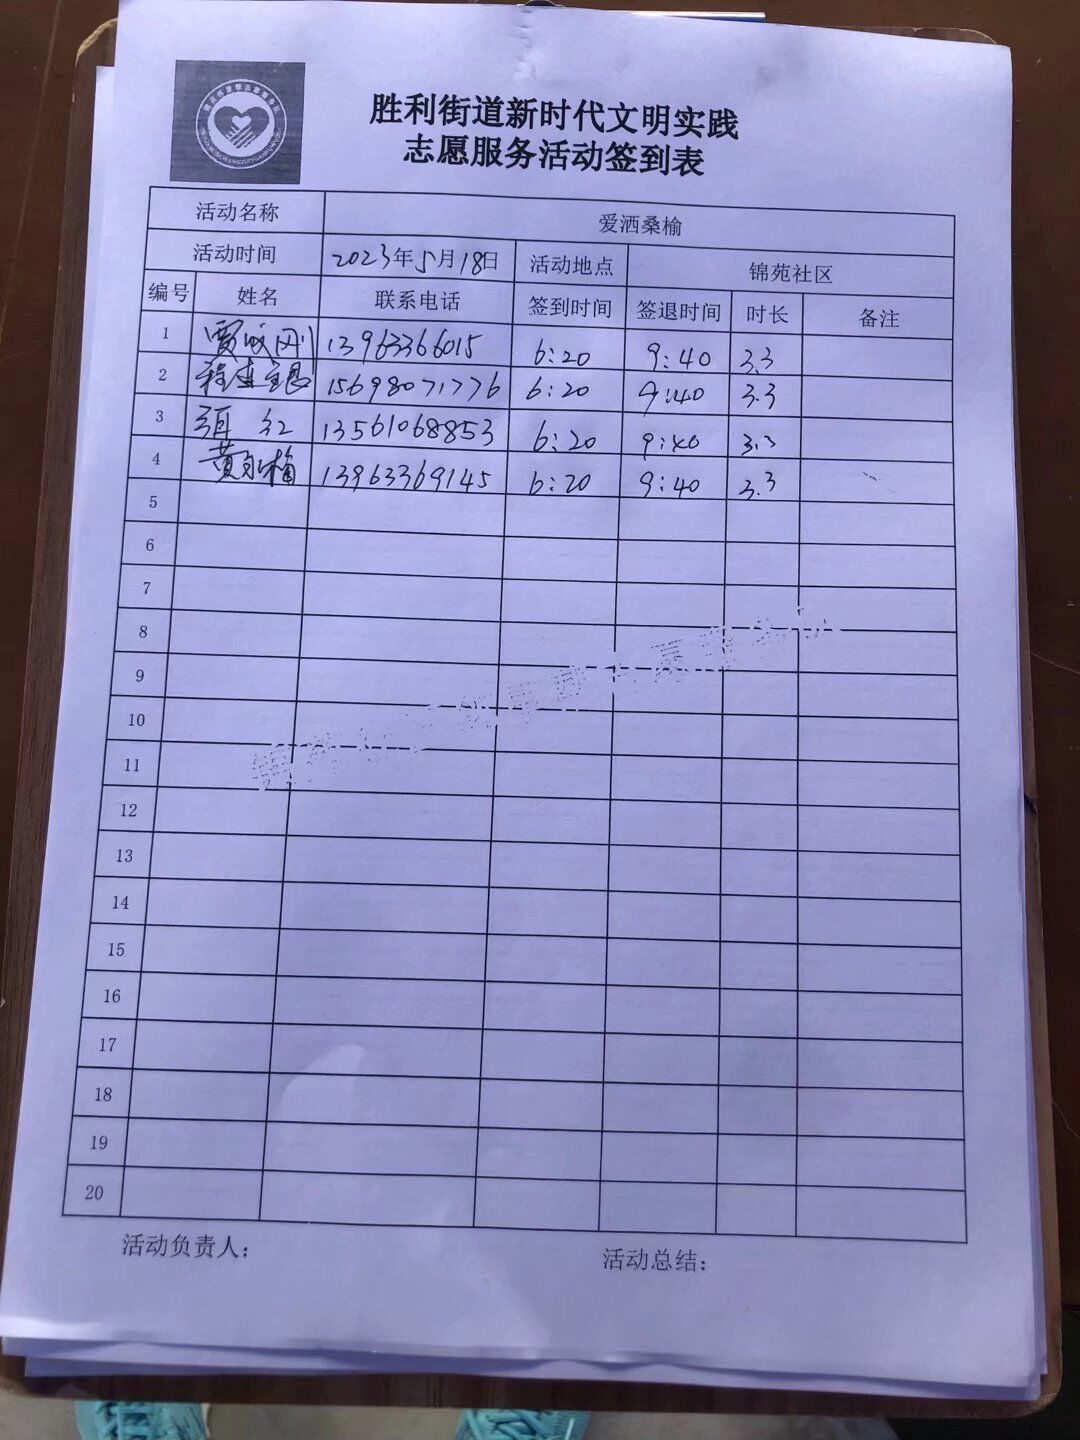 胜利街道新时代文明实践
志愿服务活动签到表
活动名称 爱洒桑榆
活动时间 2023年5月18日 活动地点 锦苑社区
编号 姓名 联系电话 签到时间 签退时间 时长 备注
1 贾 刚 13963366015 6:20 9:40 3.3
2 程 银 15698071776 6:20 9:40 3.3
3 红 13561068853 6:20 9:40 3.3
4 黄 梅 13963369145 6:20 9:40 3.3
5
6
7
8
9
10
11
12
13
14
15
16
17
18
19
20
活动负责人：
活动总结：